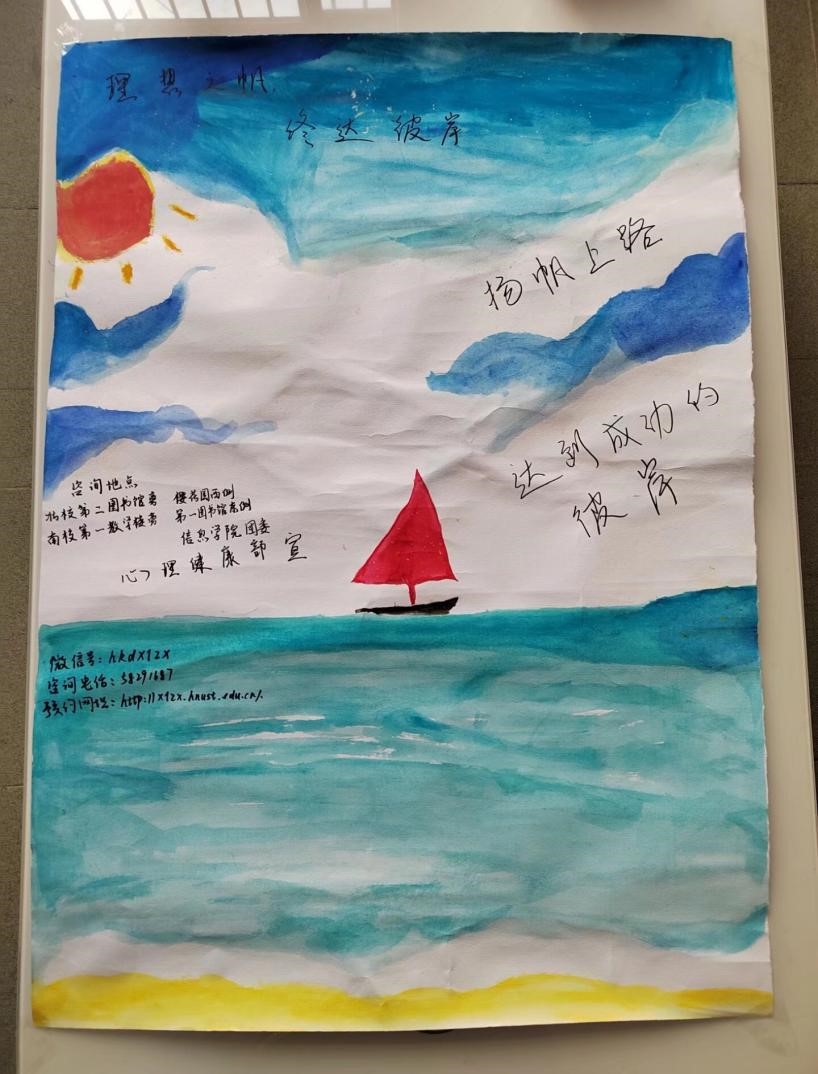 理想之帆,
终达彼岸
扬帆上路
达到成功的
彼岸
咨询地点
北校第二图书馆旁 樱花园西侧
南校第一教学楼旁 第一图书馆东侧
信息学院团委
心理健康部宣
微信号: hkdxlzx
咨询电话: 58291687
预约网址: http://xlzx.hnust.edu.cn/.